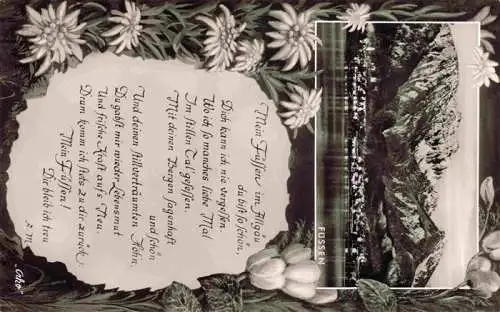 Mein Füssen im Allgäu
du bist so schön,
Dich kann ich nie vergessen.
Wo ich so manches liebe Mal
Im stillen Tal gesessen.
Mit deinen Bergen sagenhaft
und schön
Und deinen stillverträumten Höhn.
Du gabst mir wieder Lebensmut
Und frische Kraft auf's Neu.
Drum komm ich stets zu dir zurück:
Mein Füssen!
Dir bleib ich treu
FÜSSEN